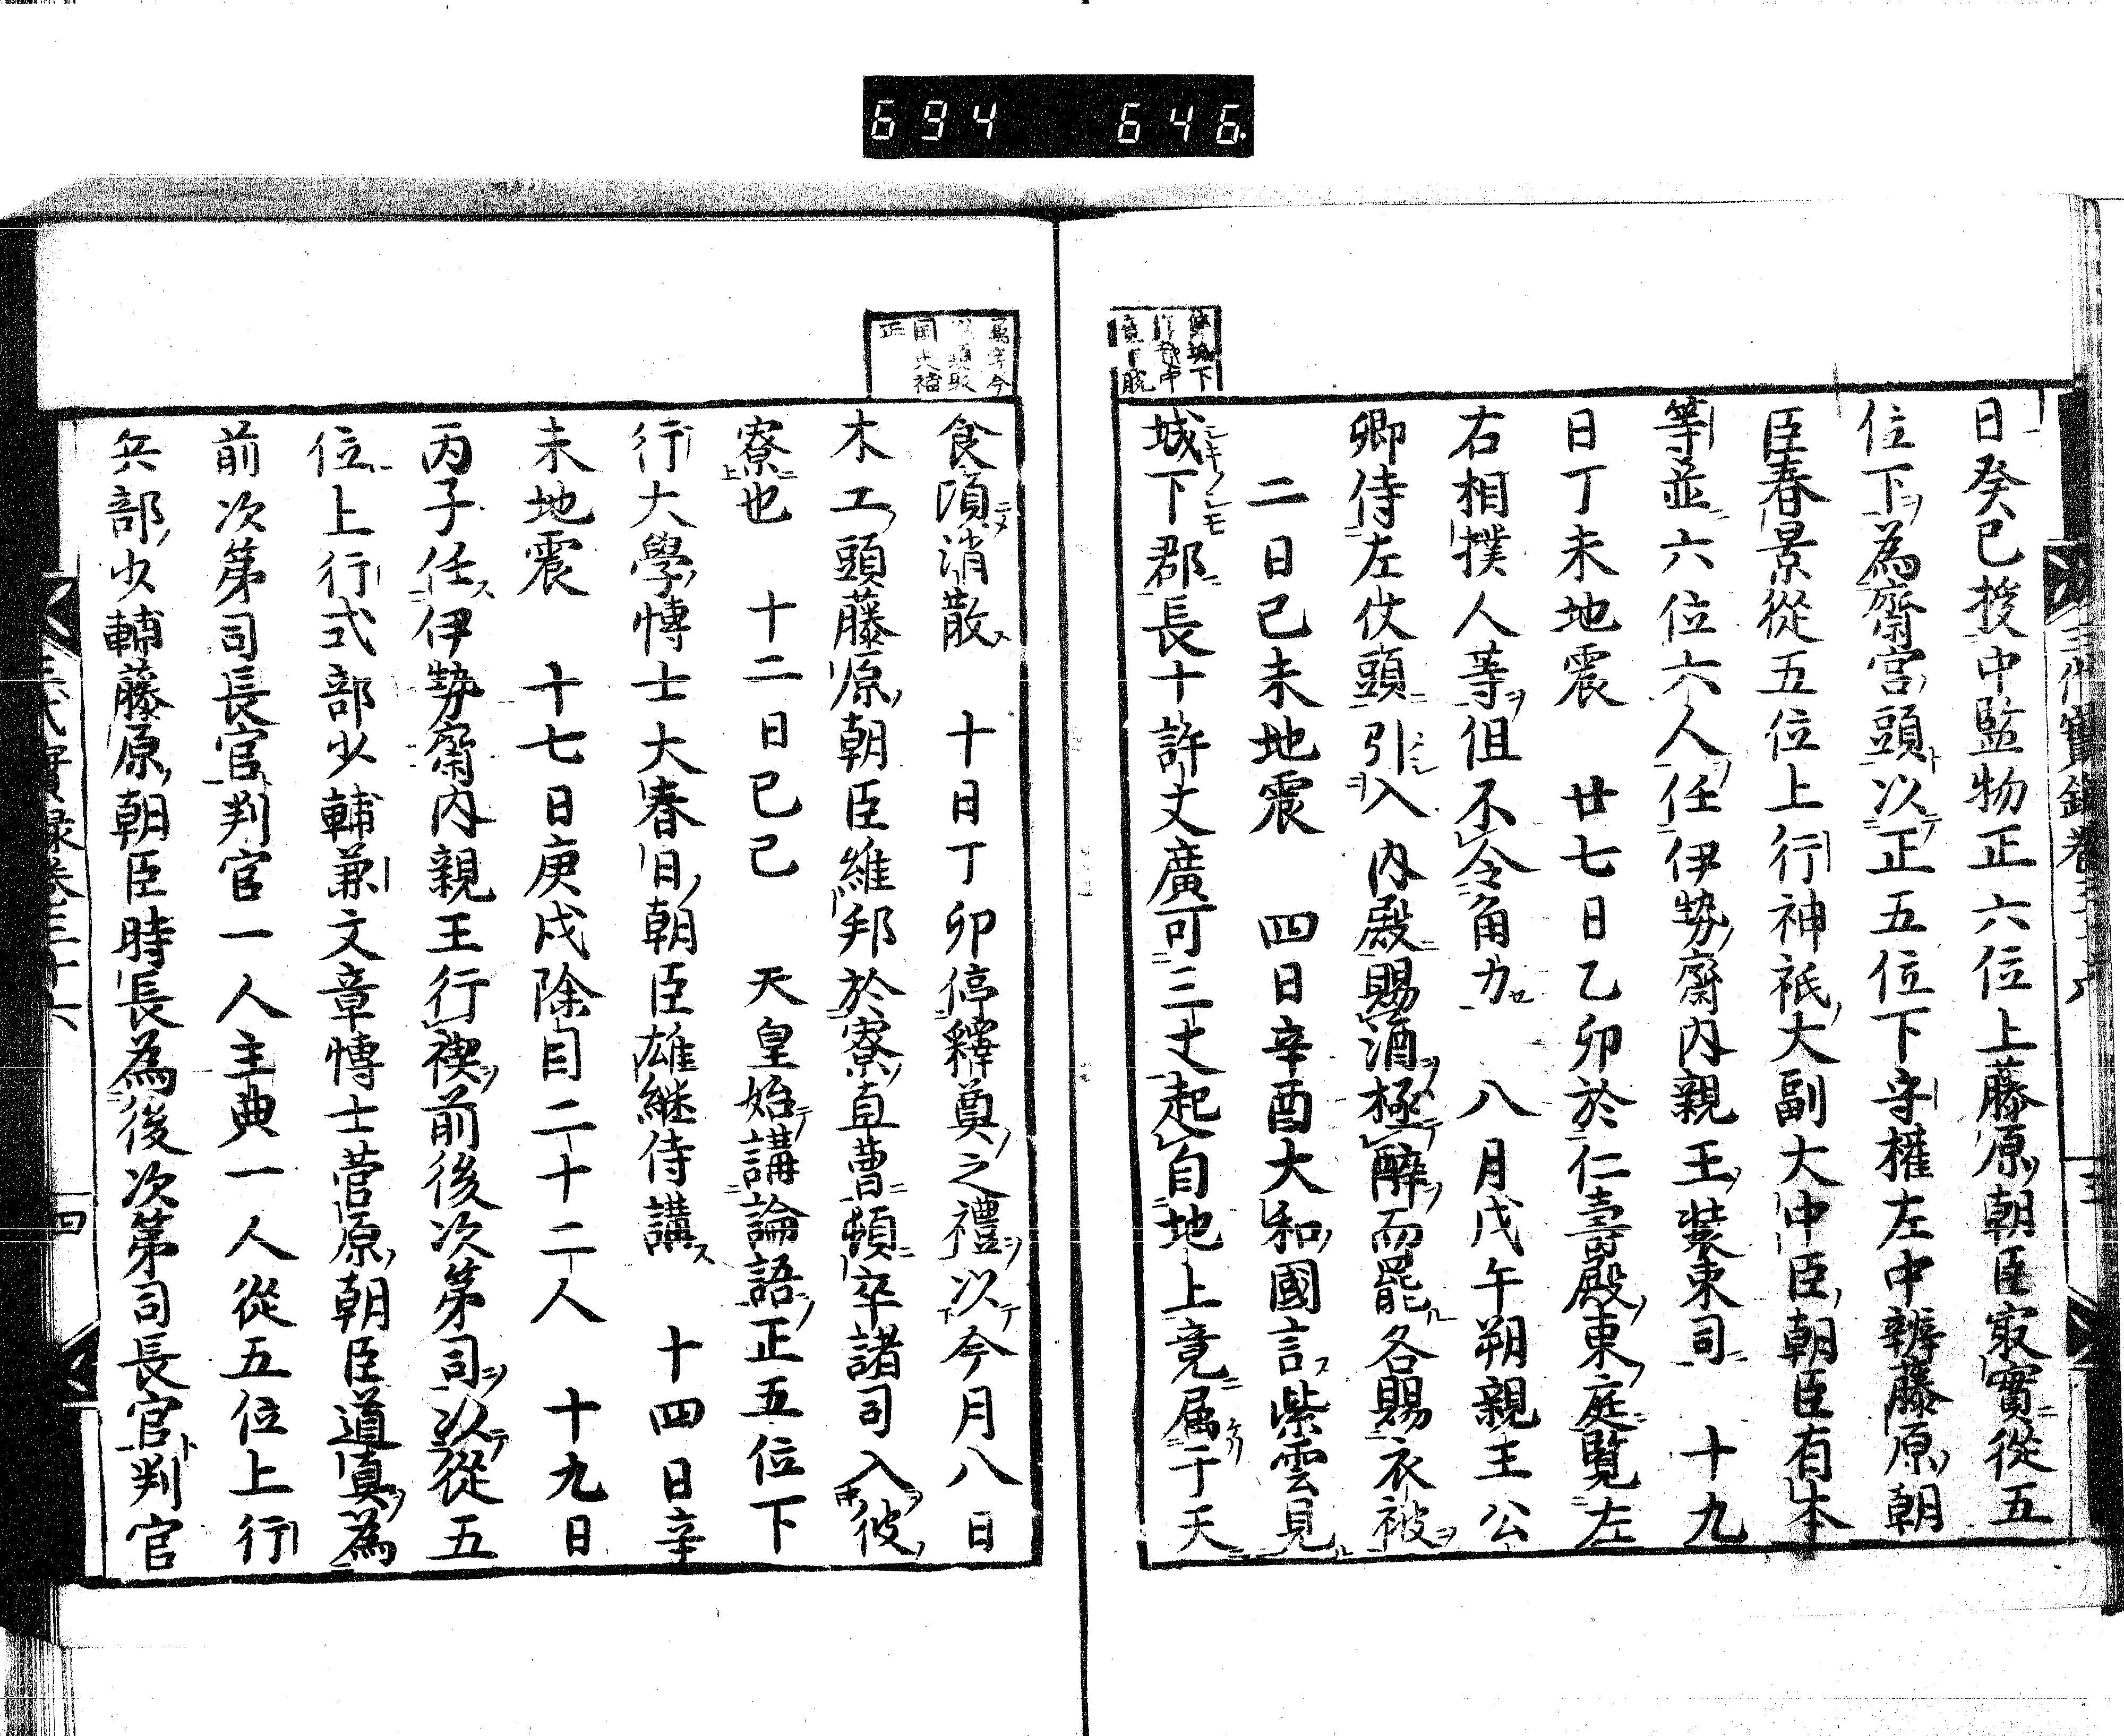 694 646
日癸巳授中監物正六位上藤原朝臣寂實從五
位下為齋宮頭以正五位下守權左中辨藤原朝
臣春景從五位上行神祇大副大中臣朝臣有本
等並六位六人任伊勢齋内親王装束司 十九
日丁未地震 廿七日乙卯於仁壽殿東庭覧左
右相撲人等但不令角力 八月戊午朔親王公
卿侍左仗頭引入内殿賜酒極醉而罷各賜衣被
二日己未地震 四日辛酉大和國言紫雲見
城下郡長十許丈廣可三丈起自地上竟属于天
食頃消散 十日丁卯停釋奠之禮以今月八日
木工頭藤原朝臣維邦於寮直曹頓卒諸司入彼
寮也 十二日己巳 天皇始講論語正五位下
行大學博士大春日朝臣雄継侍講 十四日辛
未地震 十七日庚戌除目二十二人 十九日
丙子任伊勢齋内親王行禊前後次第司以從五
位上行式部少輔兼文章博士菅原朝臣道真為
前次第司長官判官一人主典一人從五位上行
兵部少輔藤原朝臣時長為後次第司長官判官
三代實録巻三十六
四